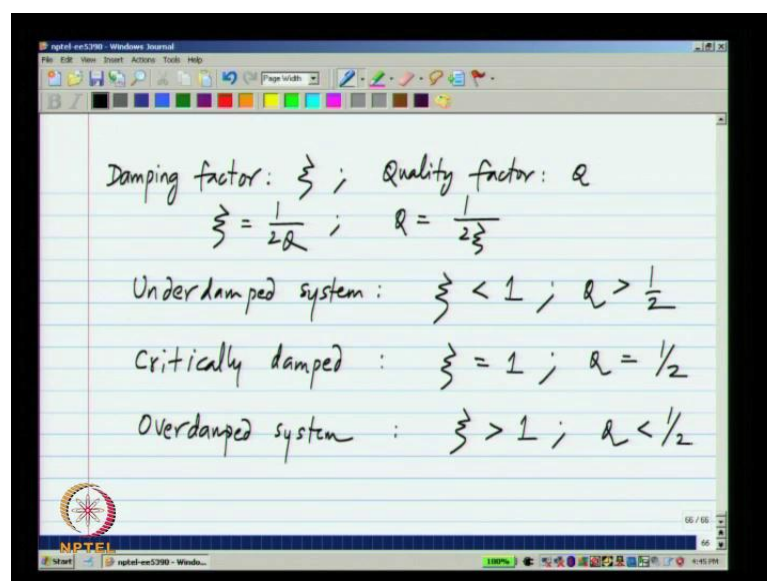 nptel-ee5390 - Windows Journal
File Edit View Insert Actions Tools Help
Page Width
B I
Damping factor: ξ ; Quality factor: Q
ξ = 1/2Q ; Q = 1/2ξ
Underdamped system : ξ < 1 ; Q > 1/2
Critically damped : ξ = 1 ; Q = 1/2
Overdamped system : ξ > 1 ; Q < 1/2
66 / 66
66
NPTEL
Start nptel-ee5390 - Windo... 100% 4:45 PM